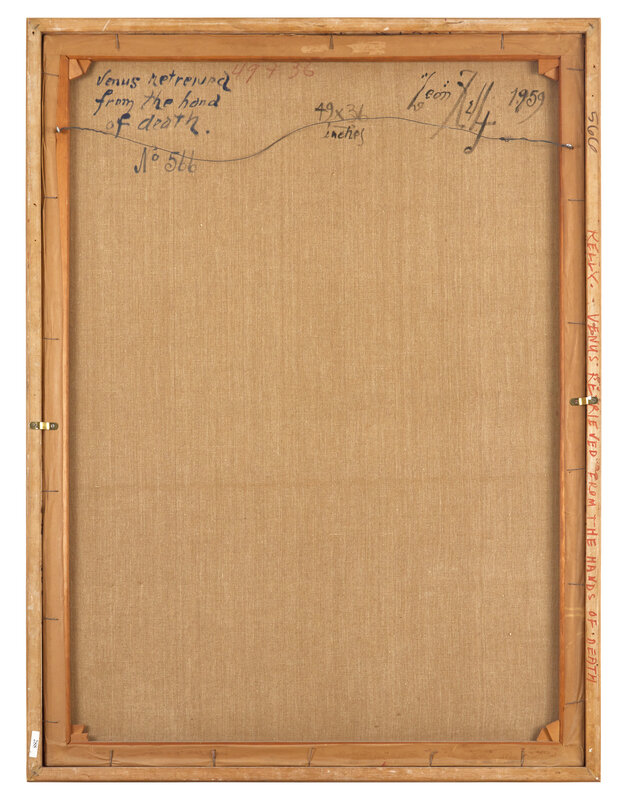 Venus retreived
from the hand
of death.
No 566
49 x 36
49x36
inches
Leon Kelly 1959
566 KELLY. - VENUS RETRIEVED FROM THE HANDS OF DEATH